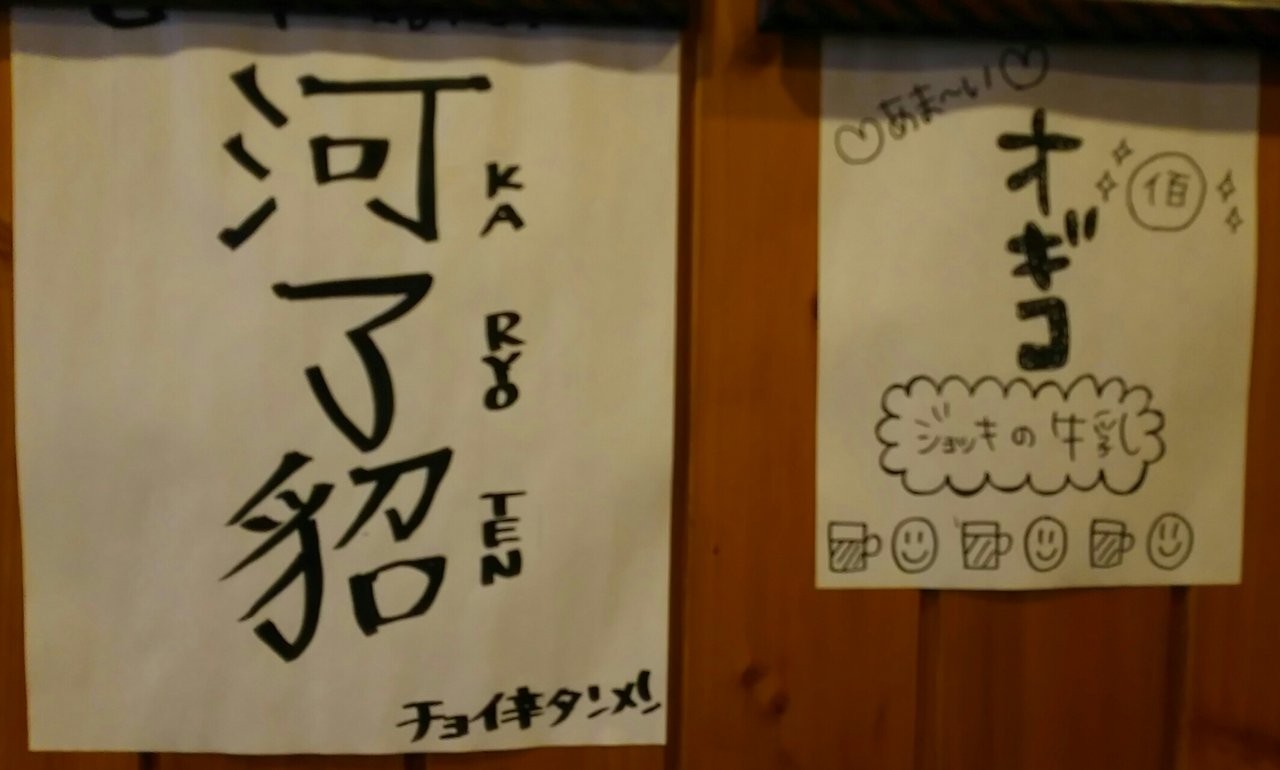 河了貂
KA RYO TEN
チョイ辛タンメン
あま〜い
オギコ
佰
ジョッキの牛乳